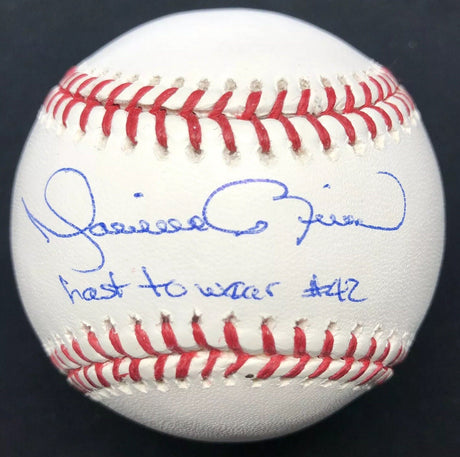 Mariano Rivera
Last to wear #42